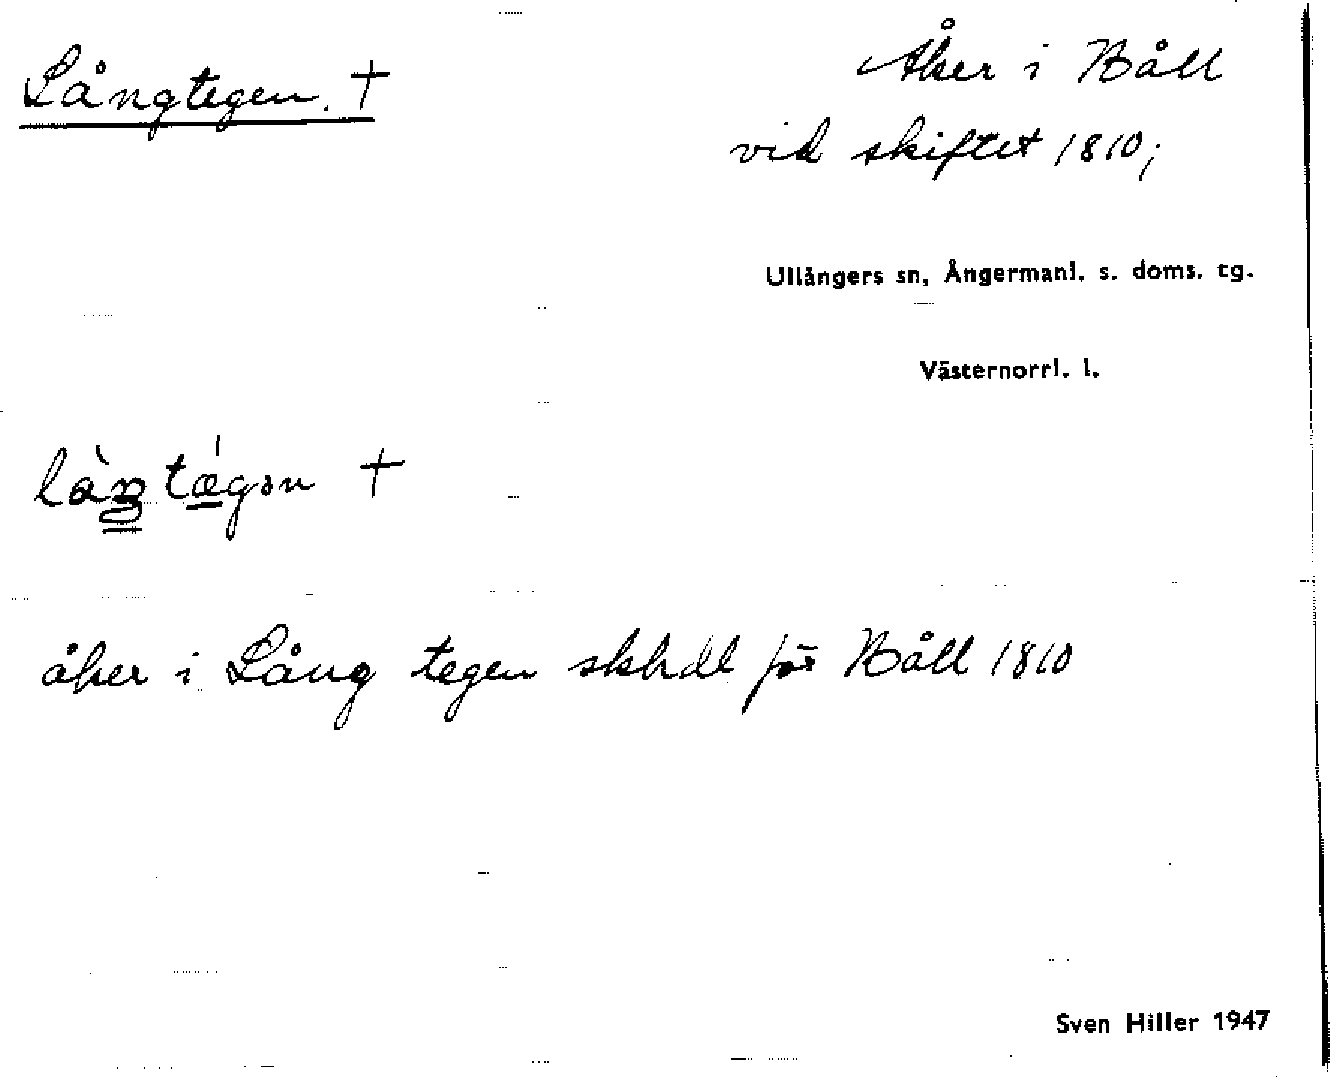 Långtegen. †
Åker i Båll
vid skiftet 1810;
Ullångers sn, Ångermanl. s. doms. tg.
Västernorrl. l.
†
åker i Lång tegen skhdl för Båll 1810
Sven Hiller 1947